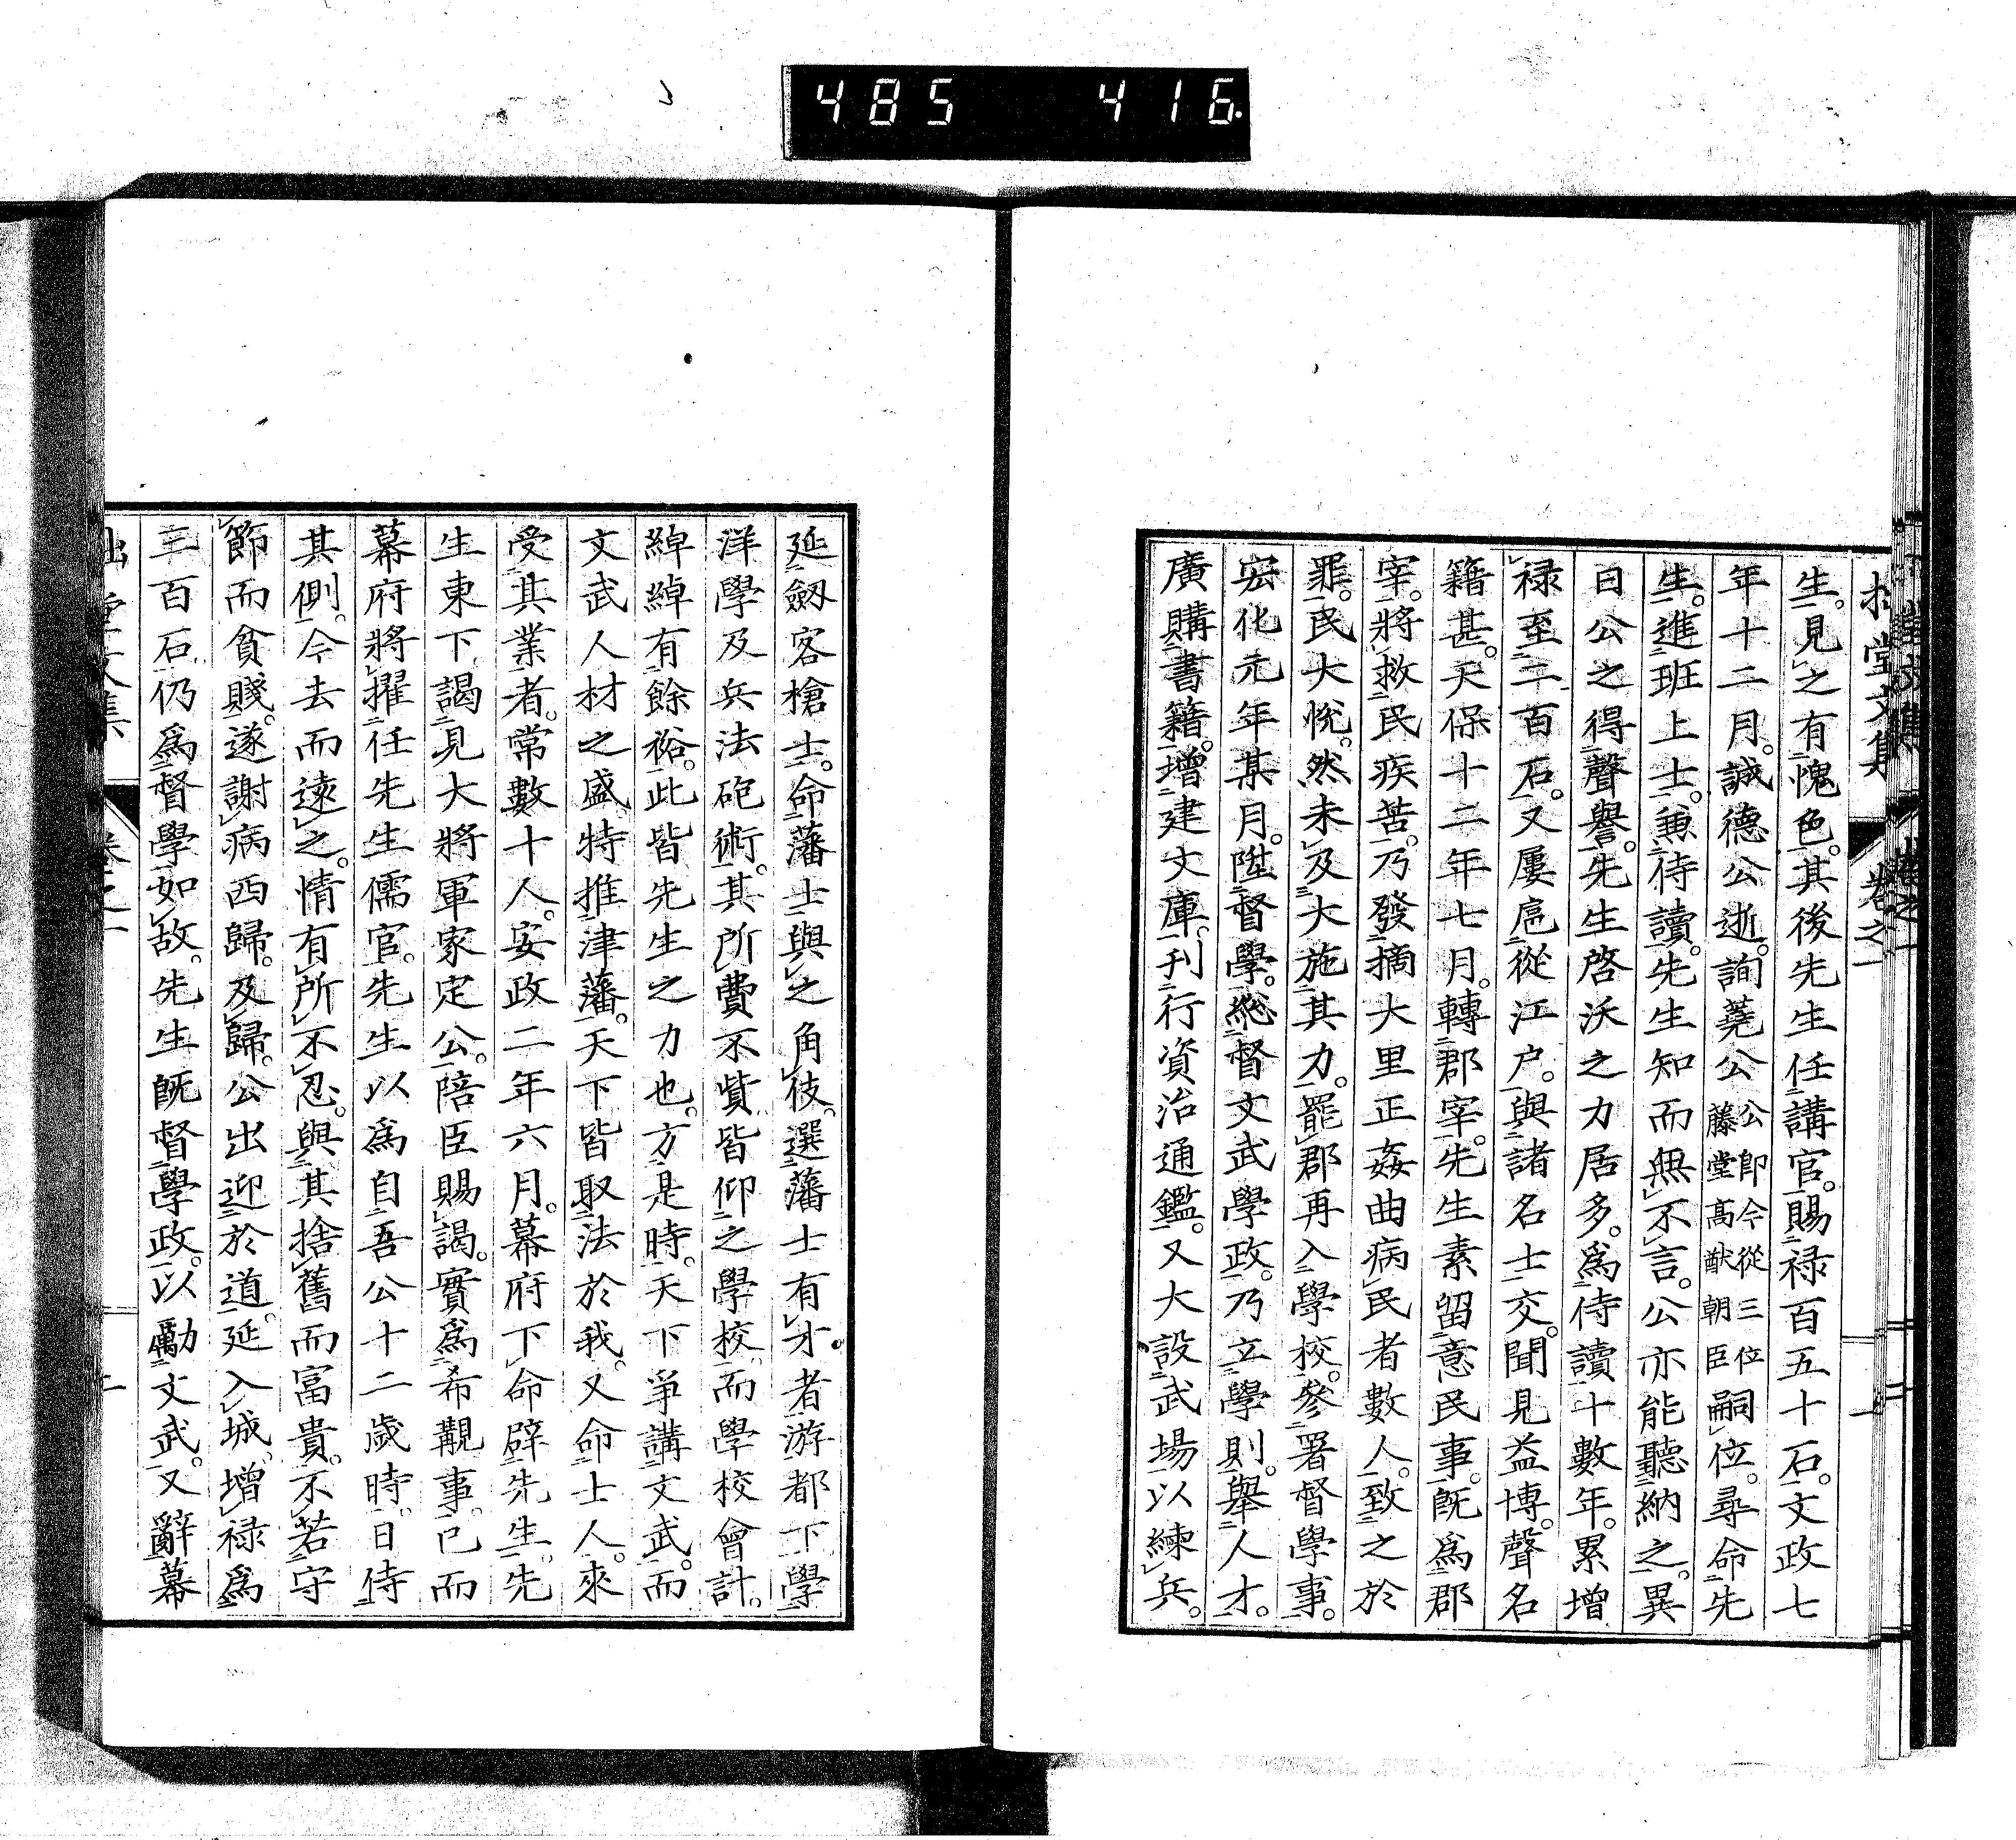 485 416
拙堂文集 卷之一 一
生。見之有愧色。其後先生任講官。賜祿百五十石。文政七
年十二月。誠德公逝。詢蕘公公卽今從三位藤堂高猷朝臣嗣位。尋命先
生。進班上士。兼侍讀。先生知而無不言。公亦能聽納之。異
日公之得聲譽。先生啓沃之力居多。爲侍讀十數年。累增
祿至二百石。又屢扈從江戶。與諸名士交。聞見益博。聲名
籍甚。天保十二年七月。轉郡宰。先生素留意民事。旣爲郡
宰。將救民疾苦。乃發摘大里正姦曲病民者數人。致之於
罪。民大悅。然未及大施其力。罷郡再入學校。參署督學事。
宏化元年某月。陞督學。總督文武學政。乃立學則。舉人才。
廣購書籍。增建文庫。刊行資治通鑑。又大設武場以練兵。
延劔客槍士。命藩士與之角伎。選藩士有才者游都下學
洋學及兵法砲術。其所費不貲皆仰之學校。而學校會計。
綽綽有餘裕。此皆先生之力也。方是時。天下爭講文武。而
文武人材之盛。特推津藩。天下皆取法於我。又命士人。來
受其業者。常數十人。安政二年六月。幕府下命辟先生。先
生東下謁見大將軍家定公。陪臣賜謁。實爲希覯事。已而
幕府將擢任先生儒官。先生以爲自吾公十二歲時。日侍
其側。今去而遠之。情有所不忍。與其捨舊而富貴。不若守
節而貧賤。遂謝病西歸。及歸。公出迎於道。延入城。增祿爲
三百石仍爲督學如故。先生旣督學政。以勵文武。又辭幕
拙堂文集 卷之一 二